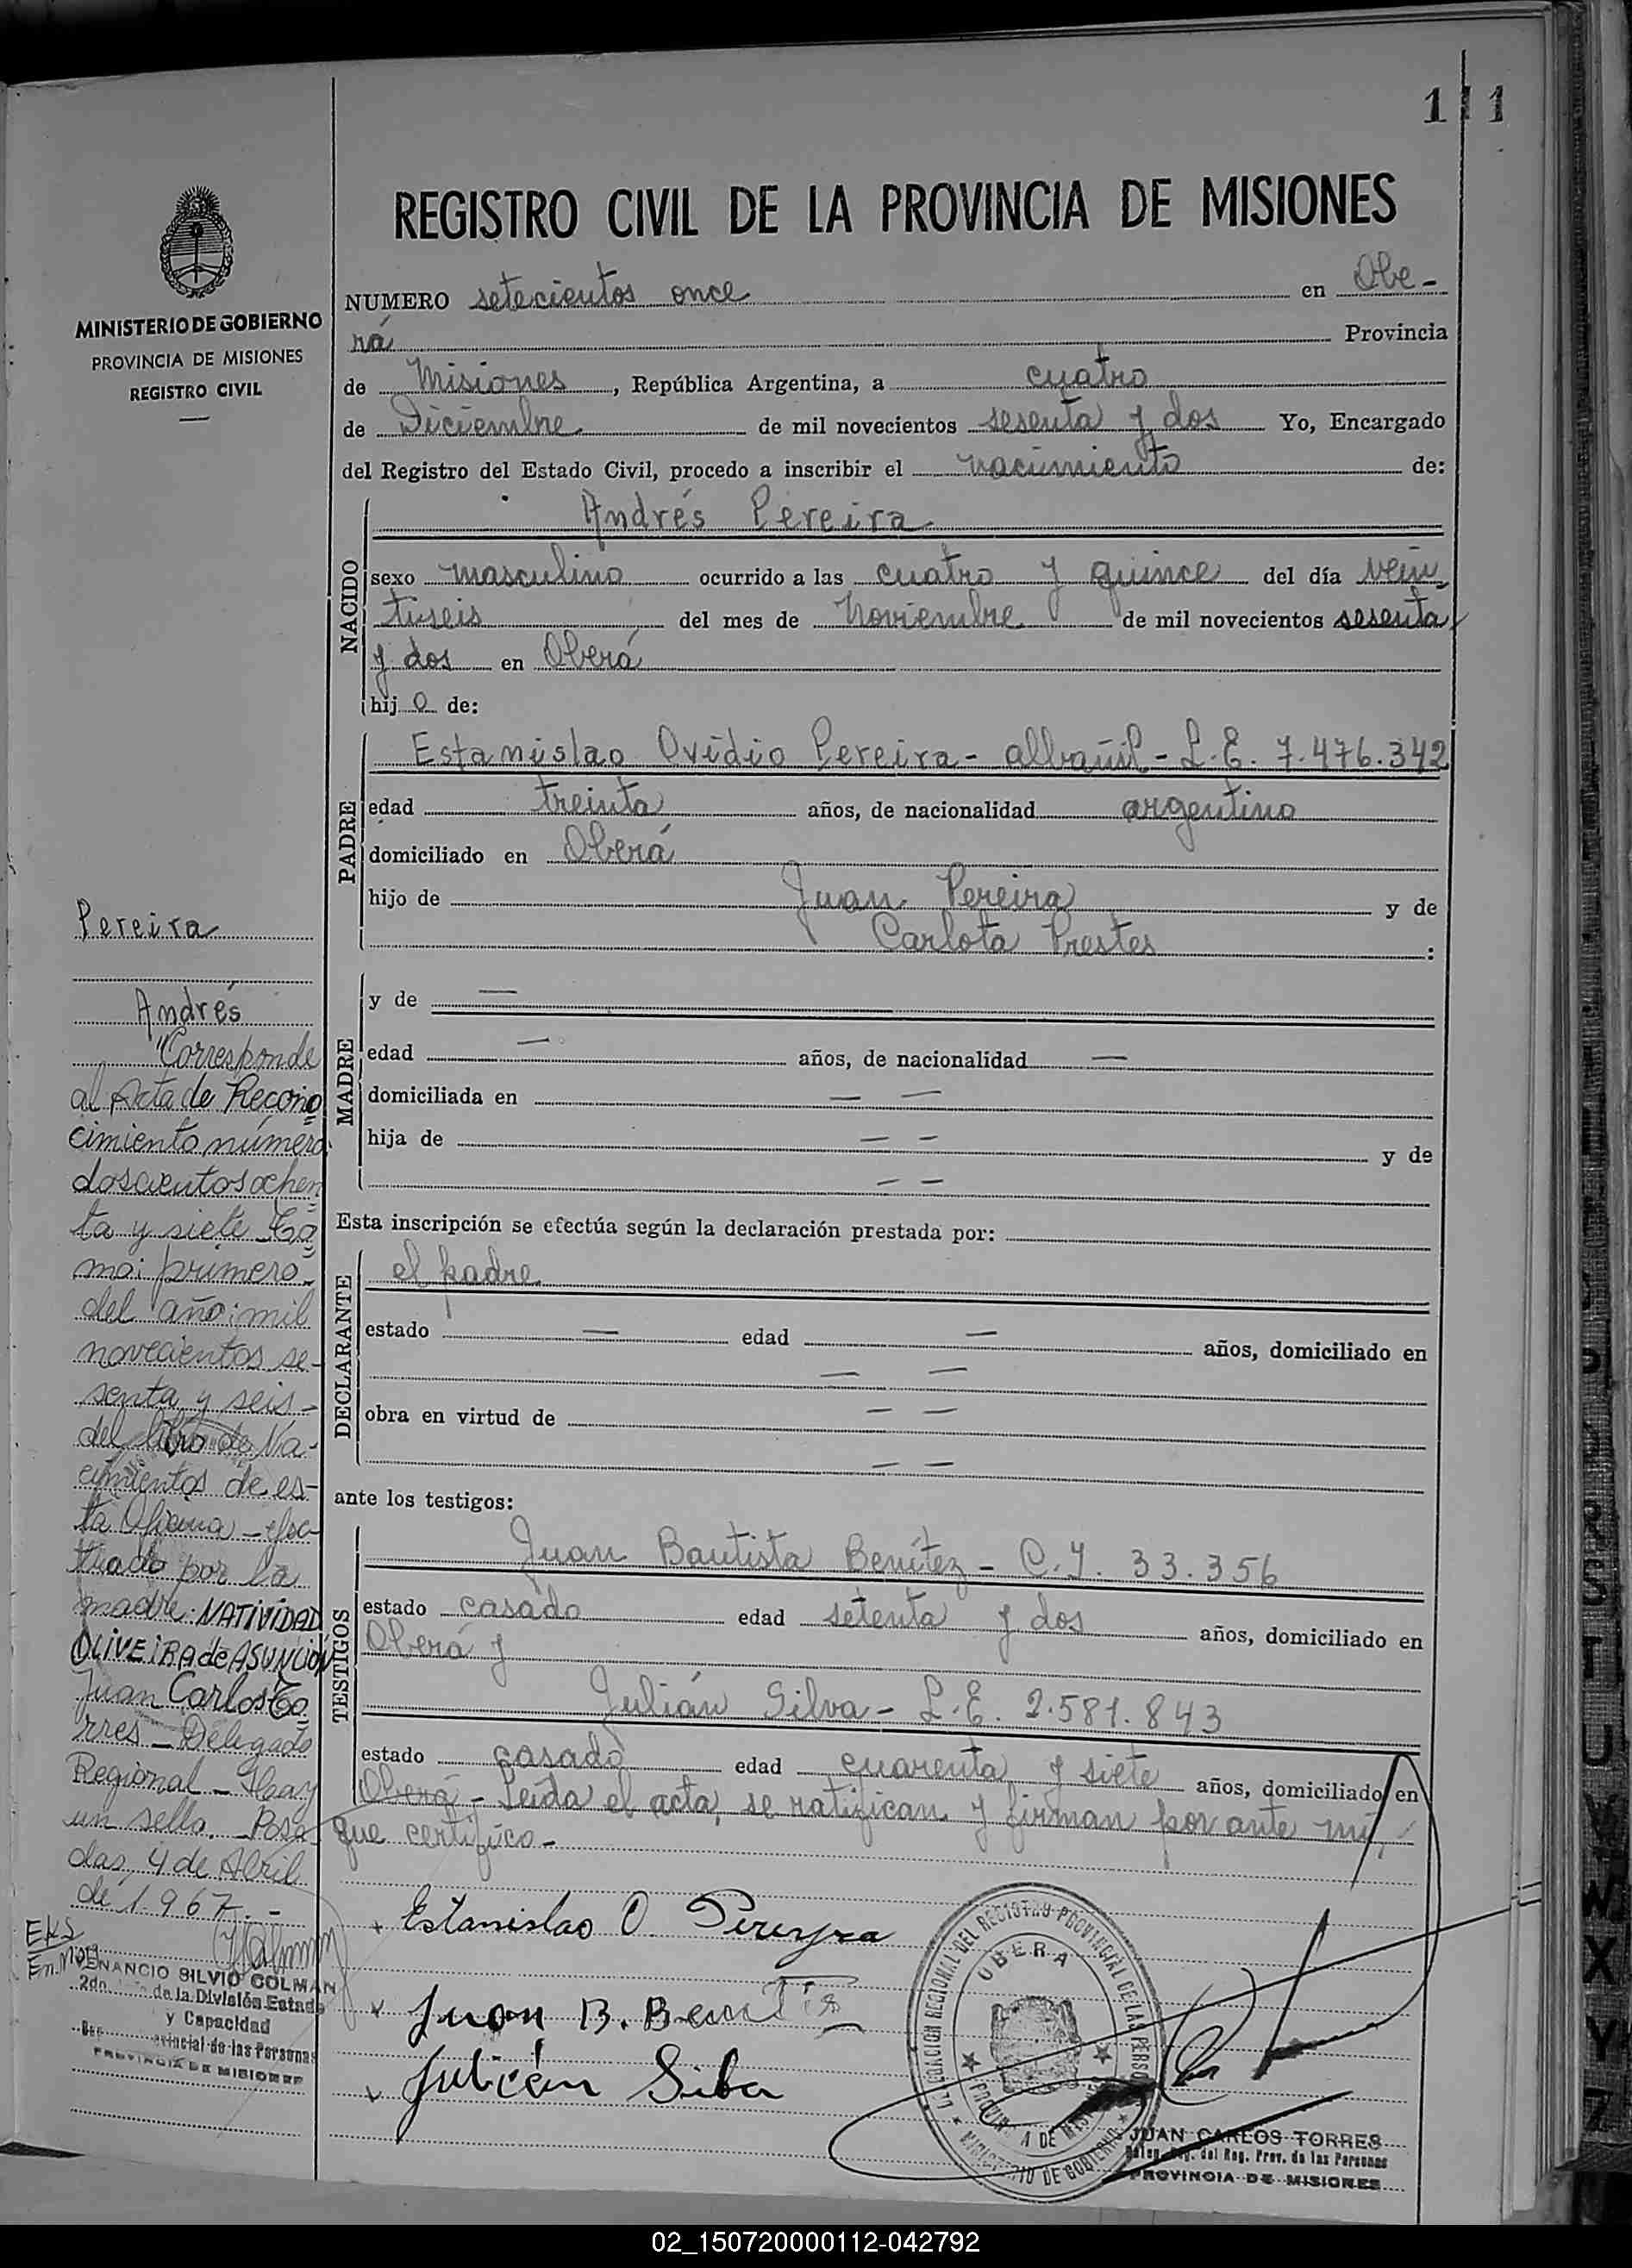 111
REGISTRO CIVIL DE LA PROVINCIA DE MISIONES
MINISTERIO DE GOBIERNO
PROVINCIA DE MISIONES
REGISTRO CIVIL
NUMERO setecientos once en Obe-
rá Provincia
de Misiones, República Argentina, a cuatro
de Diciembre de mil novecientos sesenta y dos Yo, Encargado
del Registro del Estado Civil, procedo a inscribir el nacimiento de:
NACIDO
Andrés Pereira
sexo masculino ocurrido a las cuatro y quince del día vein
tiseis del mes de Noviembre de mil novecientos sesenta
y dos en Oberá
hijo de:
PADRE
Estanislao Ovidio Pereira - albañil - L.E. 7.476.342
edad treinta años, de nacionalidad argentino
domiciliado en Oberá
hijo de Juan Pereira y de
Carlota Prestes :
MADRE
y de —
edad — años, de nacionalidad —
domiciliada en — —
hija de — — y de
— —
Esta inscripción se efectúa según la declaración prestada por:
DECLARANTE
el padre
estado — edad — años, domiciliado en
— —
obra en virtud de — —
— —
ante los testigos:
TESTIGOS
Juan Bautista Benítez - C.I. 33.356
estado casado edad setenta y dos años, domiciliado en
Oberá y
Julián Silva - L.E. 2.581.843
estado casado edad cuarenta y siete años, domiciliado en
Oberá - Leída el acta, se ratifican y firman por ante mí,
que certifico -
Estanislao O. Pereyra
Juan B. Benitis
Julián Silva
Pereira
Andrés
"Corresponde
al Acta de Recono
cimiento número
doscientos ochen
ta y siete To
mo: primero
del año: mil
novecientos se-
senta y seis -
del libro de Na-
cimientos de es-
ta Oficina - efec-
tuado por la
madre: NATIVIDAD
OLIVEIRA de ASUNCION
Juan Carlos To
rres - Delegado
Regional - Hay
un sello. Posa
das, 4 de Abril
de 1.967. -
VENANCIO SILVIO COLMAN
2do. de la División Estado
y Capacidad
Provincial de las Personas
PROVINCIA DE MISIONES
DELEGACION REGIONAL DEL REGISTRO PROVINCIAL DE LAS PERSONAS
OBERA
PROVINCIA DE MISIONES
MINISTERIO DE GOBIERNO
JUAN CARLOS TORRES
Deleg. Reg. del Reg. Prov. de las Personas
PROVINCIA DE MISIONES
S
T
U
V
W
X
Y
Z
02_150720000112-042792